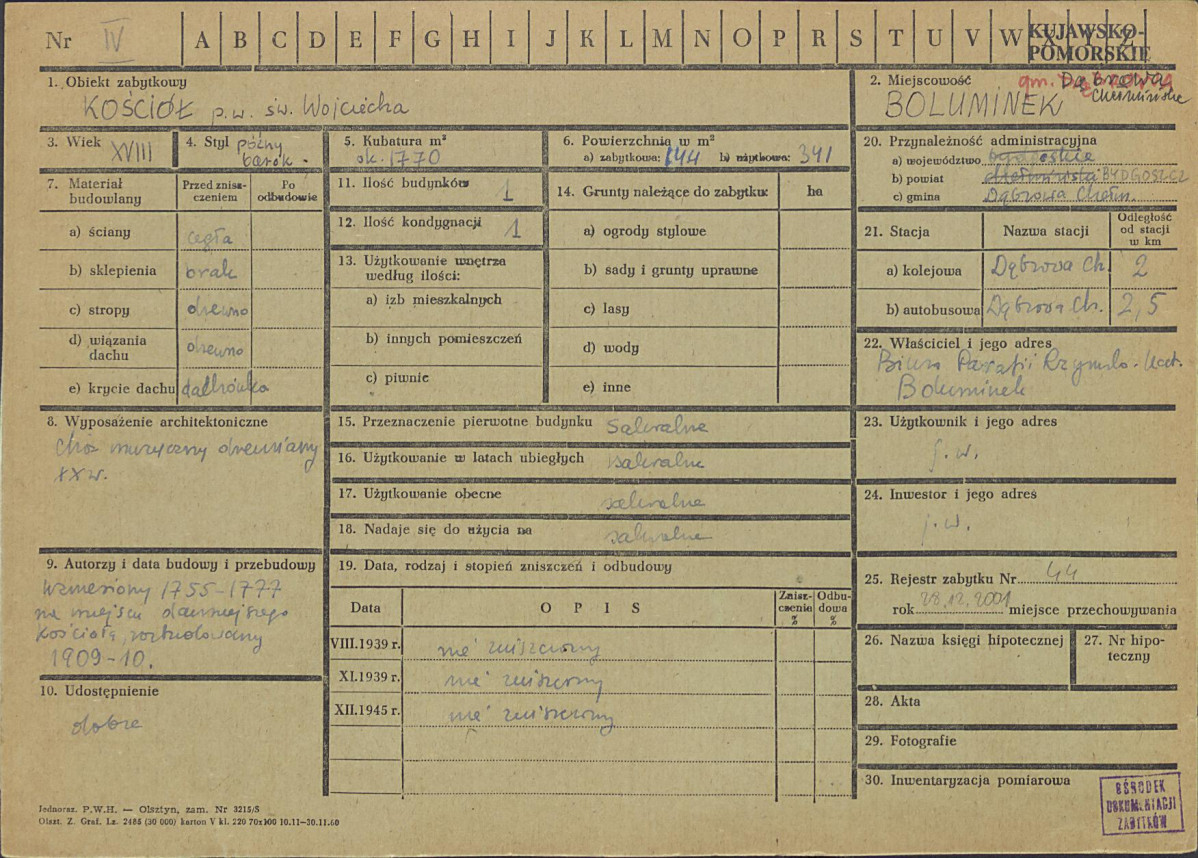 Nr IV A B C D E F G H I J K L M N O P R S T U V W X Y Z
KUJAWSKO-
POMORSKIE
1. Obiekt zabytkowy
KOŚCIÓŁ p.w. św. Wojciecha
2. Miejscowość
gm. Dąbrowa
Chełmińska
BOLUMINEK
3. Wiek XVIII
4. Styl późny
barok.
5. Kubatura m³
ok. 1770
6. Powierzchnia w m²
a) zabytkowa: 644 b) użytkowa: 341
20. Przynależność administracyjna
a) województwo bydgoskie
b) powiat chełmiński BYDGOSZCZ
c) gmina Dąbrowa Chełm.
7. Materiał
budowlany
Przed znisz-
czeniem
Po
odbudowie
a) ściany cegła
b) sklepienia brak
c) stropy drewno
d) wiązania
dachu drewno
e) krycie dachu dachówka
11. Ilość budynków 1
12. Ilość kondygnacji 1
13. Użytkowanie wnętrza
według ilości:
a) izb mieszkalnych
b) innych pomieszczeń
c) piwnic
14. Grunty należące do zabytku: ha
a) ogrody stylowe
b) sady i grunty uprawne
c) lasy
d) wody
e) inne
21. Stacja
Nazwa stacji
Odległość
od stacji
w km
a) kolejowa Dąbrowa Ch. 2
b) autobusowa Dąbrowa Ch. 2,5
22. Właściciel i jego adres
Biuro Parafii Rzymsko-Kat.
Boluminek
8. Wyposażenie architektoniczne
Chór muzyczny drewniany
XX w.
15. Przeznaczenie pierwotne budynku Sakralne
16. Użytkowanie w latach ubiegłych sakralne
17. Użytkowanie obecne sakralne
18. Nadaje się do użycia na sakralne
23. Użytkownik i jego adres
j. w.
24. Inwestor i jego adres
j. w.
9. Autorzy i data budowy i przebudowy
Wzniesiony 1755-1777
na miejscu dawniejszego
kościoła, rozbudowany
1909-10.
10. Udostępnienie
dobre
19. Data, rodzaj i stopień zniszczeń i odbudowy
Data
OPIS
Znisz-
czenie
%
Odbu-
dowa
%
VIII.1939 r. nie zniszczony
XI.1939 r. nie zniszczony
XII.1945 r. nie zniszczony
25. Rejestr zabytku Nr 44
rok 28.12.2001 miejsce przechowywania
26. Nazwa księgi hipotecznej
27. Nr hipo-
teczny
28. Akta
29. Fotografie
30. Inwentaryzacja pomiarowa
OŚRODEK
DOKUMENTACJI
ZABYTKÓW
Jednoraz. P.W.H. — Olsztyn, zam. Nr 3215/S
Olszt. Z. Graf. Lz. 2485 (30 000) karton V kl. 220 70x100 10.11—30.11.60